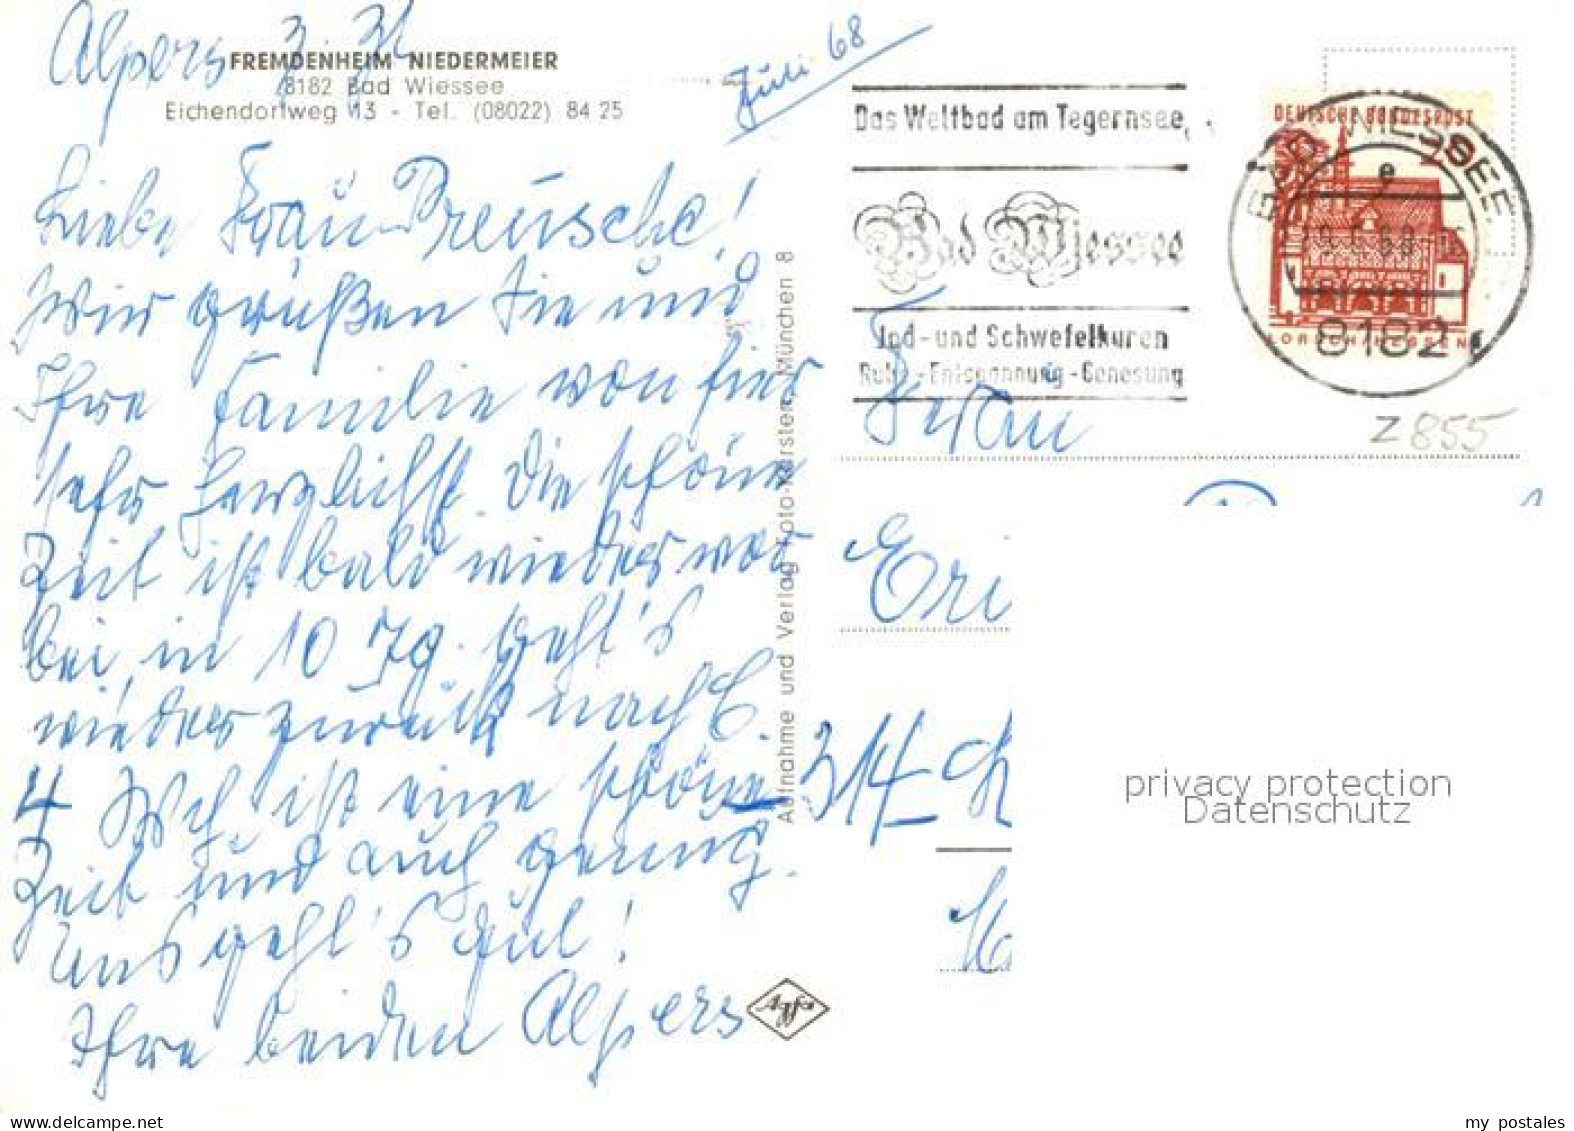 Alpers z. Zt.
FREMDENHEIM NIEDERMEIER
8182 Bad Wiessee
Eichendorfweg 13 - Tel. (08022) 84 25
Juli 68
Liebe Frau Preusche!
Wir grüßen Sie und
Ihre Familie von hier
sehr herzlichst. Die schöne
Zeit ist bald wieder vor
bei, in 10 Tg. geht's
wieder zurück nach C.
4 Wch. ist eine schöne
Zeit und auch genug.
Uns geht's gut!
Ihre beiden Alpers
Aufnahme und Verlag Foto-Kersten, München 8
Agfa
Das Weltbad am Tegernsee
Bad Wiessee
Jod- und Schwefelkuren
Ruhe - Entspannung - Genesung
DEUTSCHE BUNDESPOST
LORSCH/HESSEN
BAD WIESSEE
e
8182
Z 855
Frau
Eri
314
privacy protection
Datenschutz
my postales